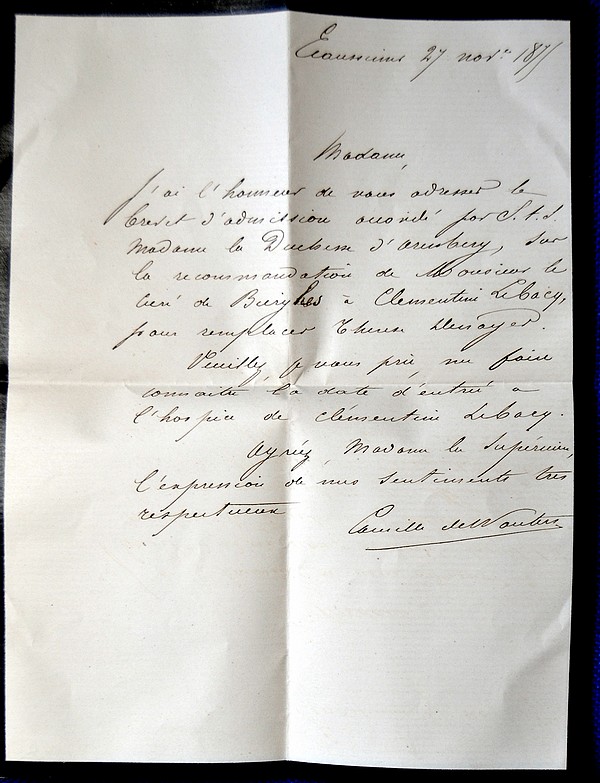 Ecaussines 27 nov.re 1875
Madame,
J'ai l'honneur de vous adresser le
brevet d'admission accordé par S.A.S.
Madame la Duchesse d'Arenberg, sur
la recommandation de Monsieur le
curé de Bierghes à Clementine Lebacq,
pour remplacer Therese
Veuillez, je vous prie me faire
connaitre la date d'entrée à
l'hospice de Clémentine Lebacq.
Agréez, Madame la Supérieure,
l'expression de mes sentiments très
respectueux
Camille de Wouters